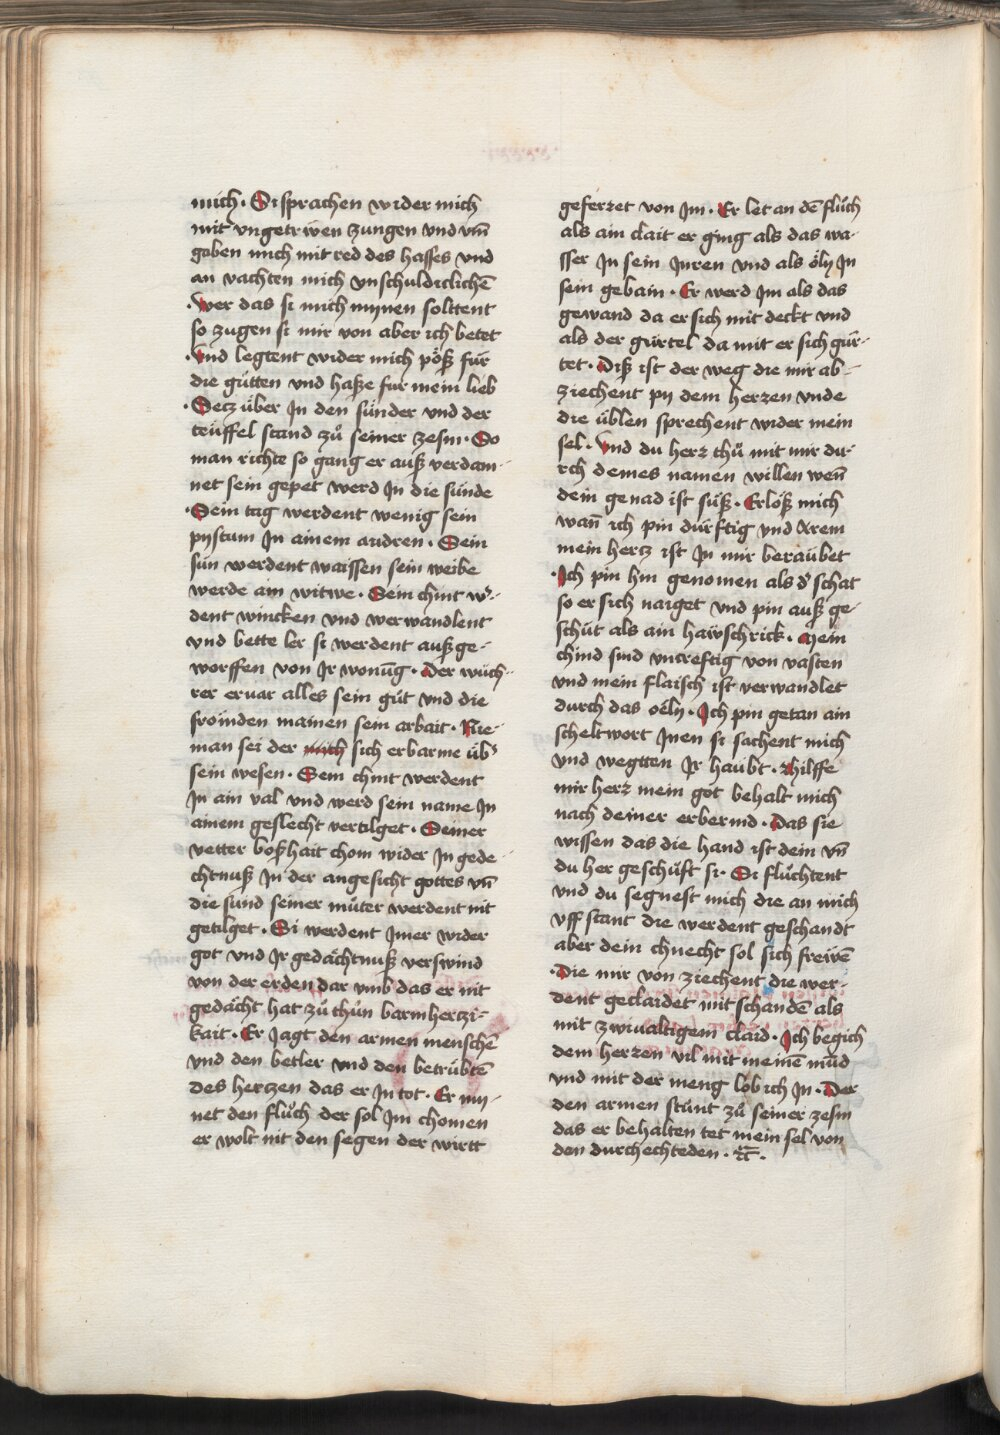 mich · Si sprachen wider mich
mit vngetrwen zungen vnd vm̄
gaben mich mit red des hasses vnd
an vachten mich vnschuldiclichē
· Wer das si mich mynen solttent
so zugen si mir von aber ich betet
· Vnd legtent wider mich pöß für
die gütten vnd haße fur mein lieb
· Secz über Jn den sünder vnd der
teüffel stand zů seiner zesm · So
man richte so gang er auß verdam-
net sein gepet werd Jn die sünde
· Sein tag werdent wenig sein
pystum Jn ainem andren · Sein
sün werdent waissen sein weibe
werde ain witwe · Sein chint w̉-
dent wincken vnd verwandlent
vnd bette ler si werdent auß ge-
worffen von Jr wonūg · Der wůch-
rer ervar alles sein gůt vnd die
froinden mainen sein arbait · Nie-
man sei der mich sich erbarme üb̉
sein wesen · Sein chint werdent
Jn ain val vnd werd sein name Jn
ainem geslecht vertilget · Seiner
vetter boßhait chom wider Jn gede-
chtnuß Jn der angesicht gottes vn̄
die sünd seiner můter werdent nit
getilget · Si werdent Jmer wider
got vnd Jr gedächtnuß verswind
von der erden dar vmb das er nit
gedächt hat zů thůn barmherczi-
kait · Er Jagt den armen menschē
vnd den betler vnd den betrübtē
des hertzen das er Jn tot · Er my-
net den flůch der sol Jm chomen
er wolt nit den segen der wirtt
geferret von Jm · Er let an dē flůch
als ain clait er ging als das wa-
sser Jn sein Jnren vnd als öly Jn
sein gebain · Er werd Jm als das
gewand da er sich mit deckt vnd
als der gürtel da mit er sich gür-
tet · Diß ist der weg die mir ab-
ziechent py dem herzen vnde
die üblen sprechent wider mein
sel · Vnd du herz thů mit mir du-
rch deines namen willen wen̄
dein genad ist süß · Erlöß mich
wan̄ ich pin dürftig vnd Arem
mein hertz ist Jn mir beraubet
· Jch pin hin genomen als d̉ schat
so er sich naiget vnd pin auß ge-
schüt als ain haẅschrick · Mein
chind sind vncreftig von vasten
vnd mein flaisch ist verwandlet
durch das oely · Jch pin getan ain
scheltwort Jnen si sachent mich
vnd wegtten Jr haubt · Hilffe
mir herz mein got behalt mich
nach deiner erbermd · Das sie
wissen das die hand ist dein vn̄
du her geschůft si · Si flůchtent
vnd du segnest mich die an mich
vff stant die werdent geschandt
aber dein chnecht sol sich freẅē
· Die mir von ziechent die wer-
dent geclaidet mit schandē als
mit zwiualtigem claid · Jch begich
dem herzen vil mit meinē mūd
vnd mit der meng lob ich Jn · Der
den armen stůnt zů seiner zesm
das er behalten tet mein sel von
den durchechteden · etc̄ ·